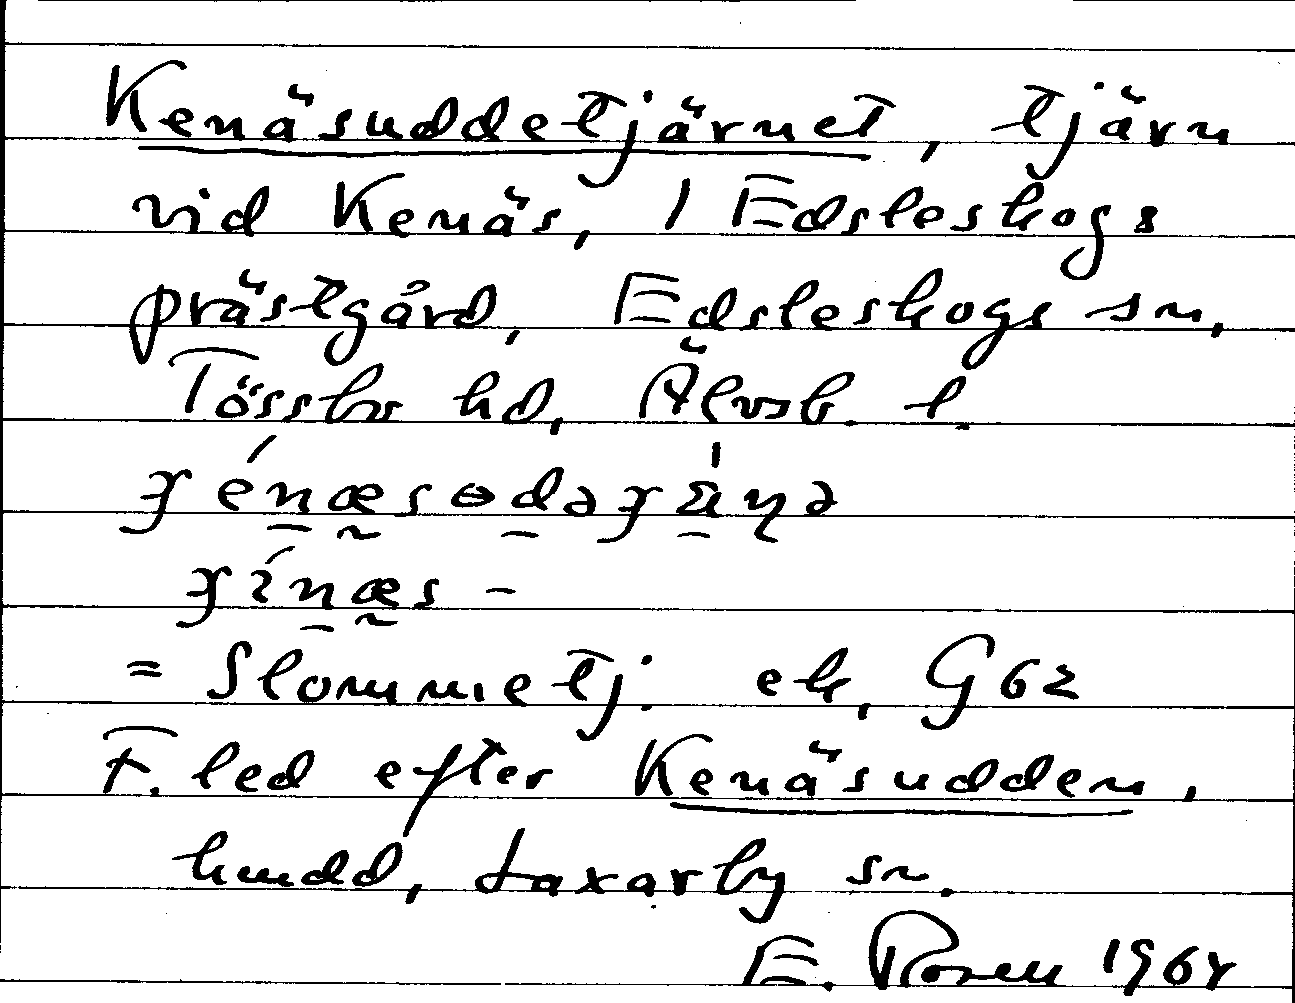 Kenäsuddetjärnet, tjärn
vid Kenäs, 1 Edsleskogs
prästgård, Edsleskogs sn,
Tössbo hd, Älvsb. l.
= Slommetj. ek, G62
F. led efter Kenäsudden,
hmdd, Laxarby sn.
E. Rosén 1964